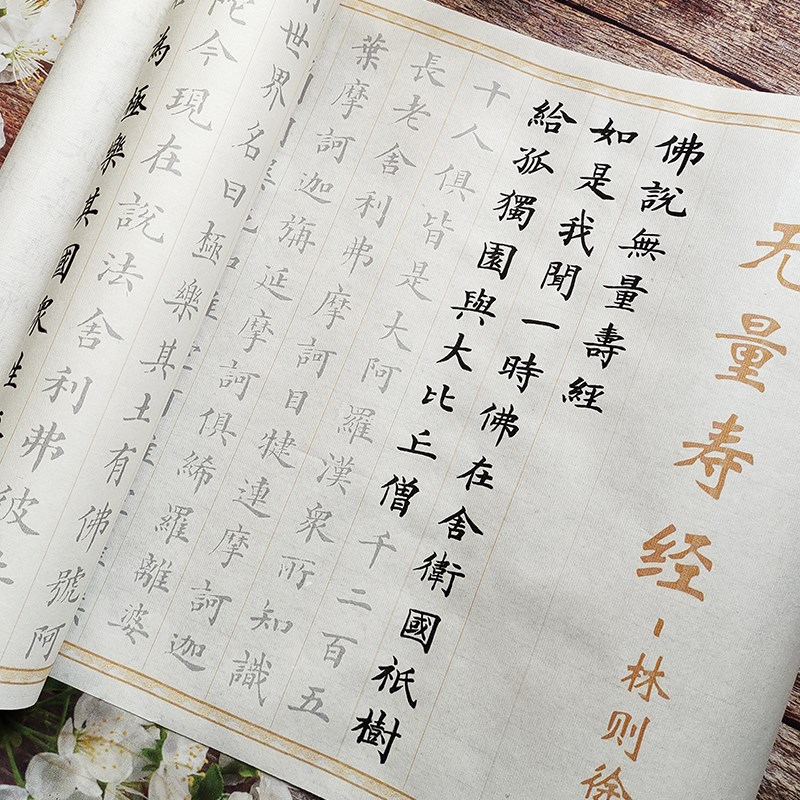 无量寿经-林则徐
佛說無量壽經
如是我聞一時佛在舍衛國祇樹
給孤獨園與大比丘僧千二百五
十人俱皆是大阿羅漢眾所知識
長老舍利弗摩訶目犍連摩訶迦
葉摩訶迦旃延摩訶俱絺羅離婆
世界名曰極樂其土有佛號阿
陀今現在說法舍利弗彼
為極樂其國眾生